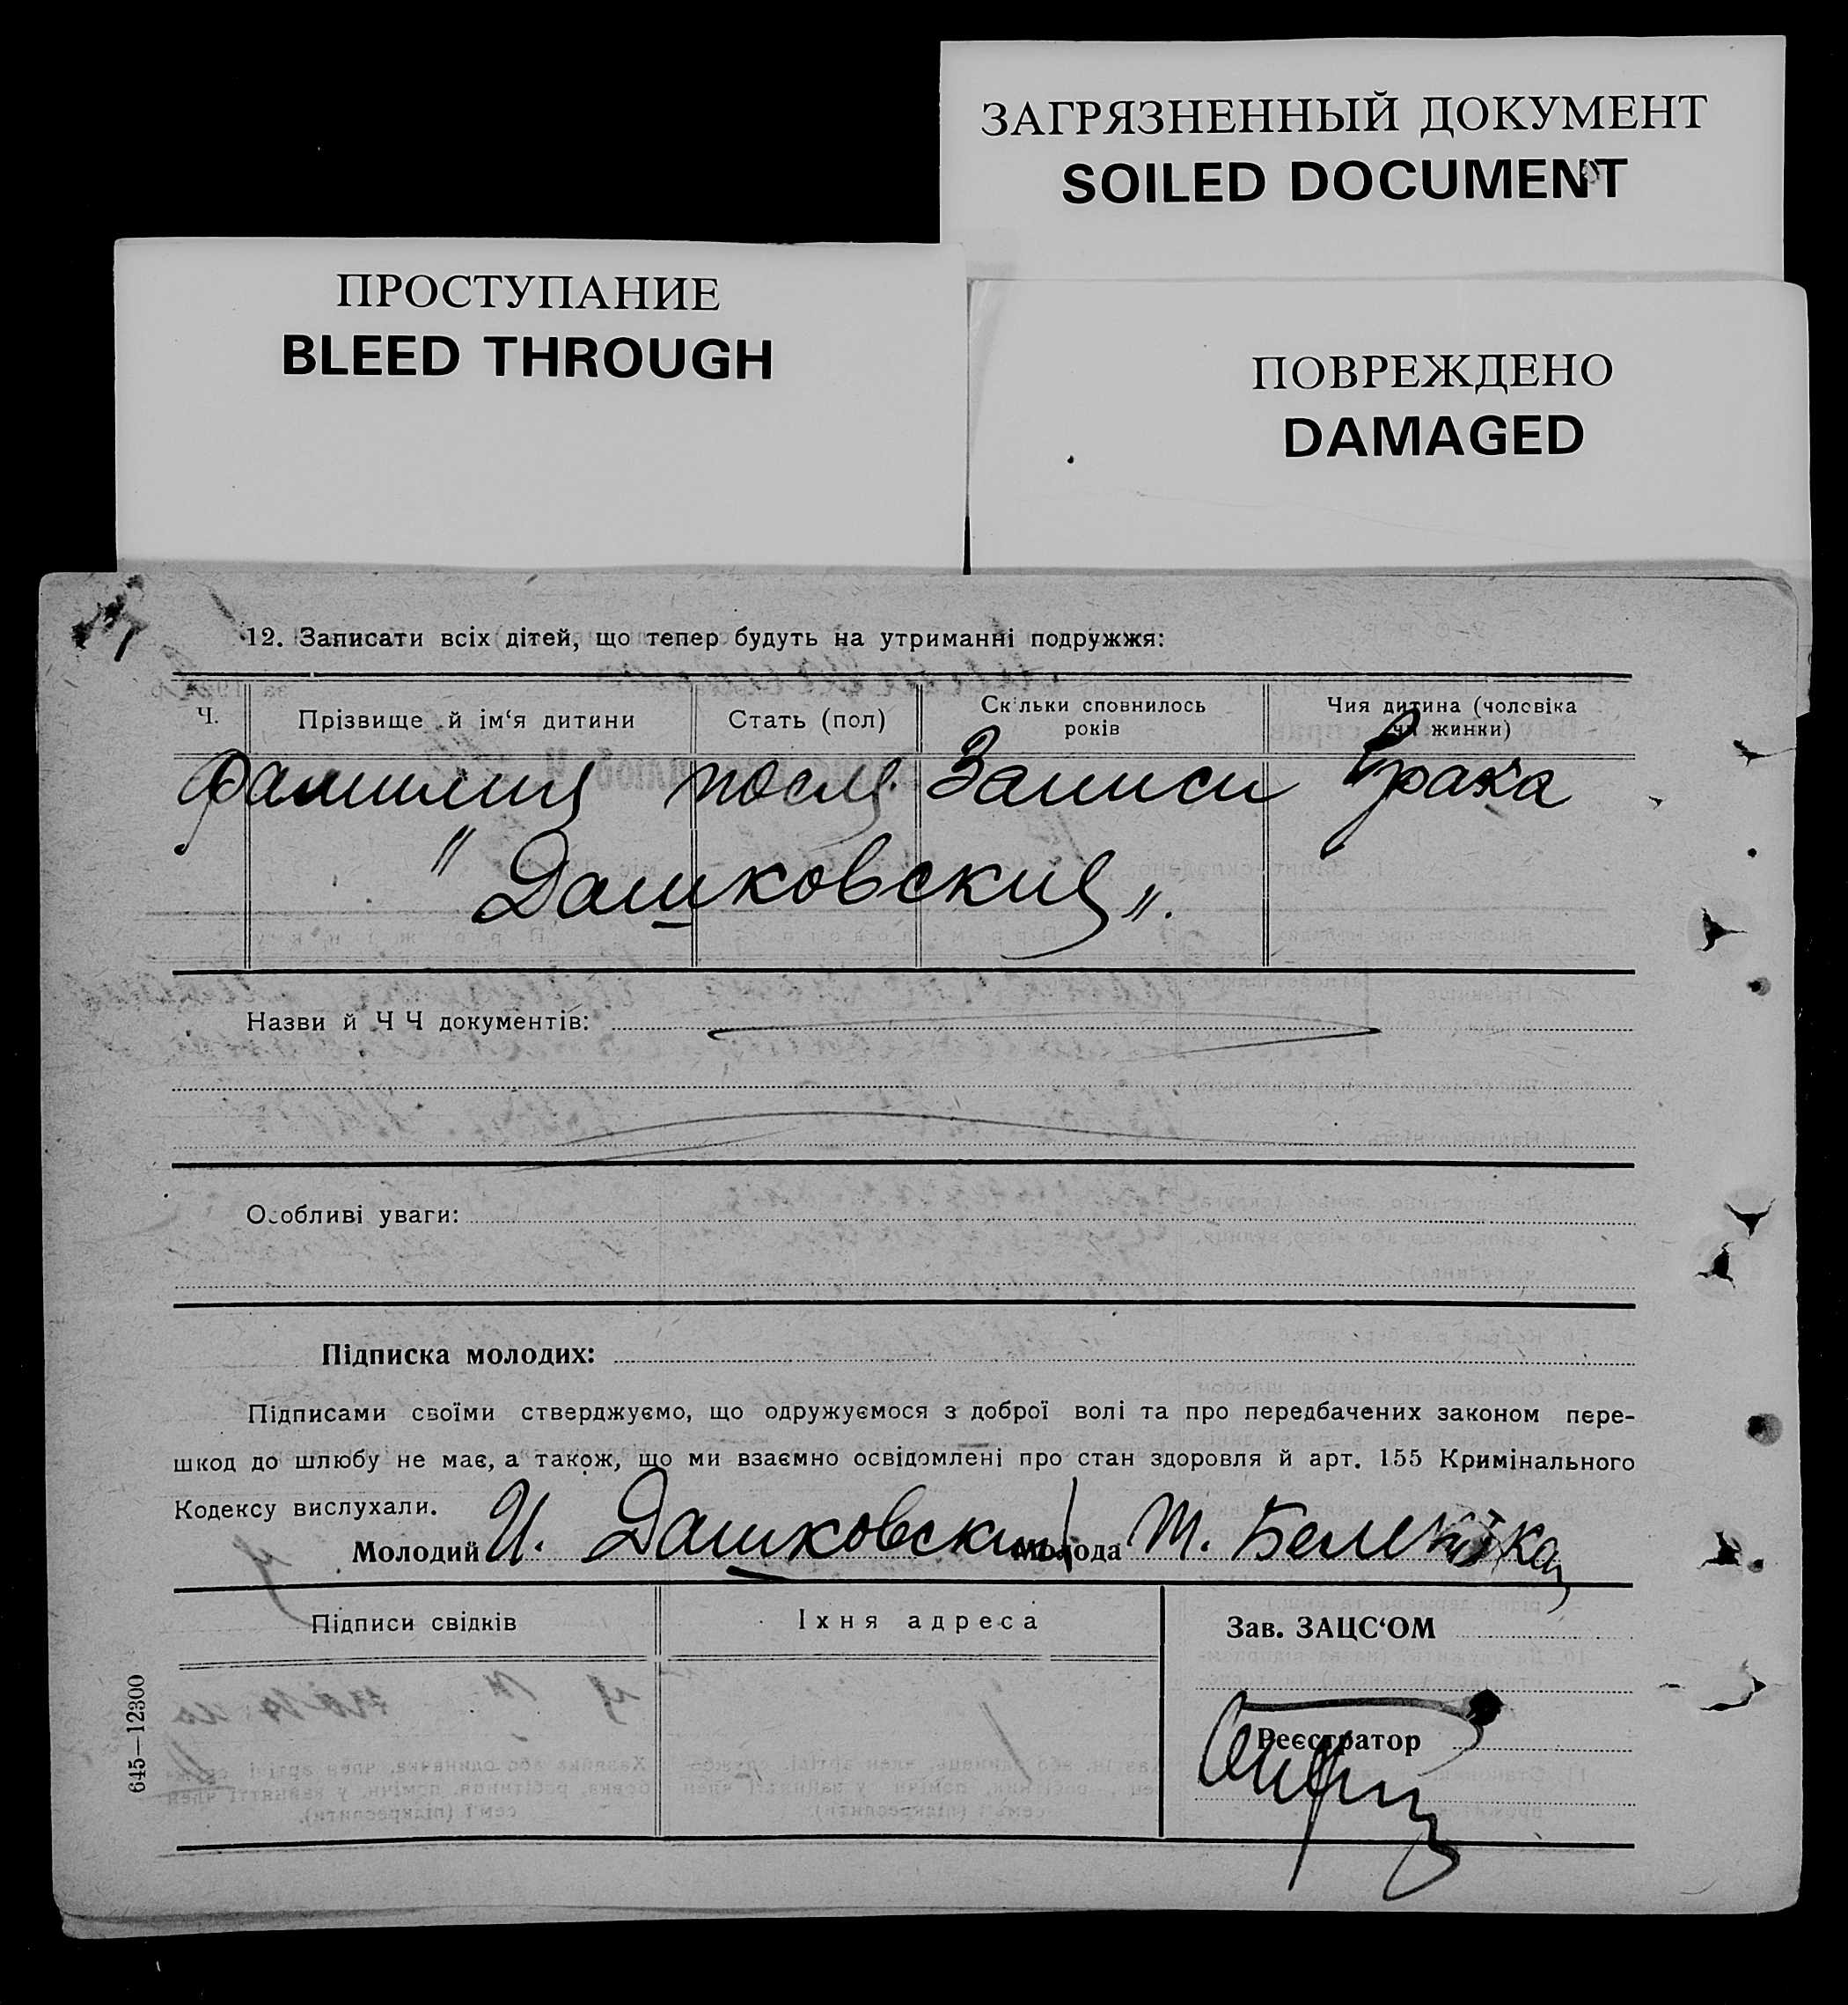 ЗАГРЯЗНЕННЫЙ ДОКУМЕНТ
SOILED DOCUMENT
ПРОСТУПАНИЕ
BLEED THROUGH
ПОВРЕЖДЕНО
DAMAGED
12. Записати всіх дітей, що тепер будуть на утриманні подружжя:
Ч.
Прізвище й ім‘я дитини
Стать (пол)
Скільки сповнилось
років
Чия дитина (чоловіка
чи жинки)
Фамилия после Записи Брака
" Дашковский ".
Назви й Ч Ч документів:
Особливі уваги:
Підписка молодих:
Підписами своїми стверджуємо, що одружуємося з доброї волі та про передбачених законом пере-
шкод до шлюбу не має, а також, що ми взаємно освідомлені про стан здоровля й арт. 155 Кримінального
Кодексу вислухали.
Молодий И. Дашковский Молода Т.
Підписи свідків
Їхня адреса
Зав. ЗАЦС‘ОМ
Реєстратор
645—12300